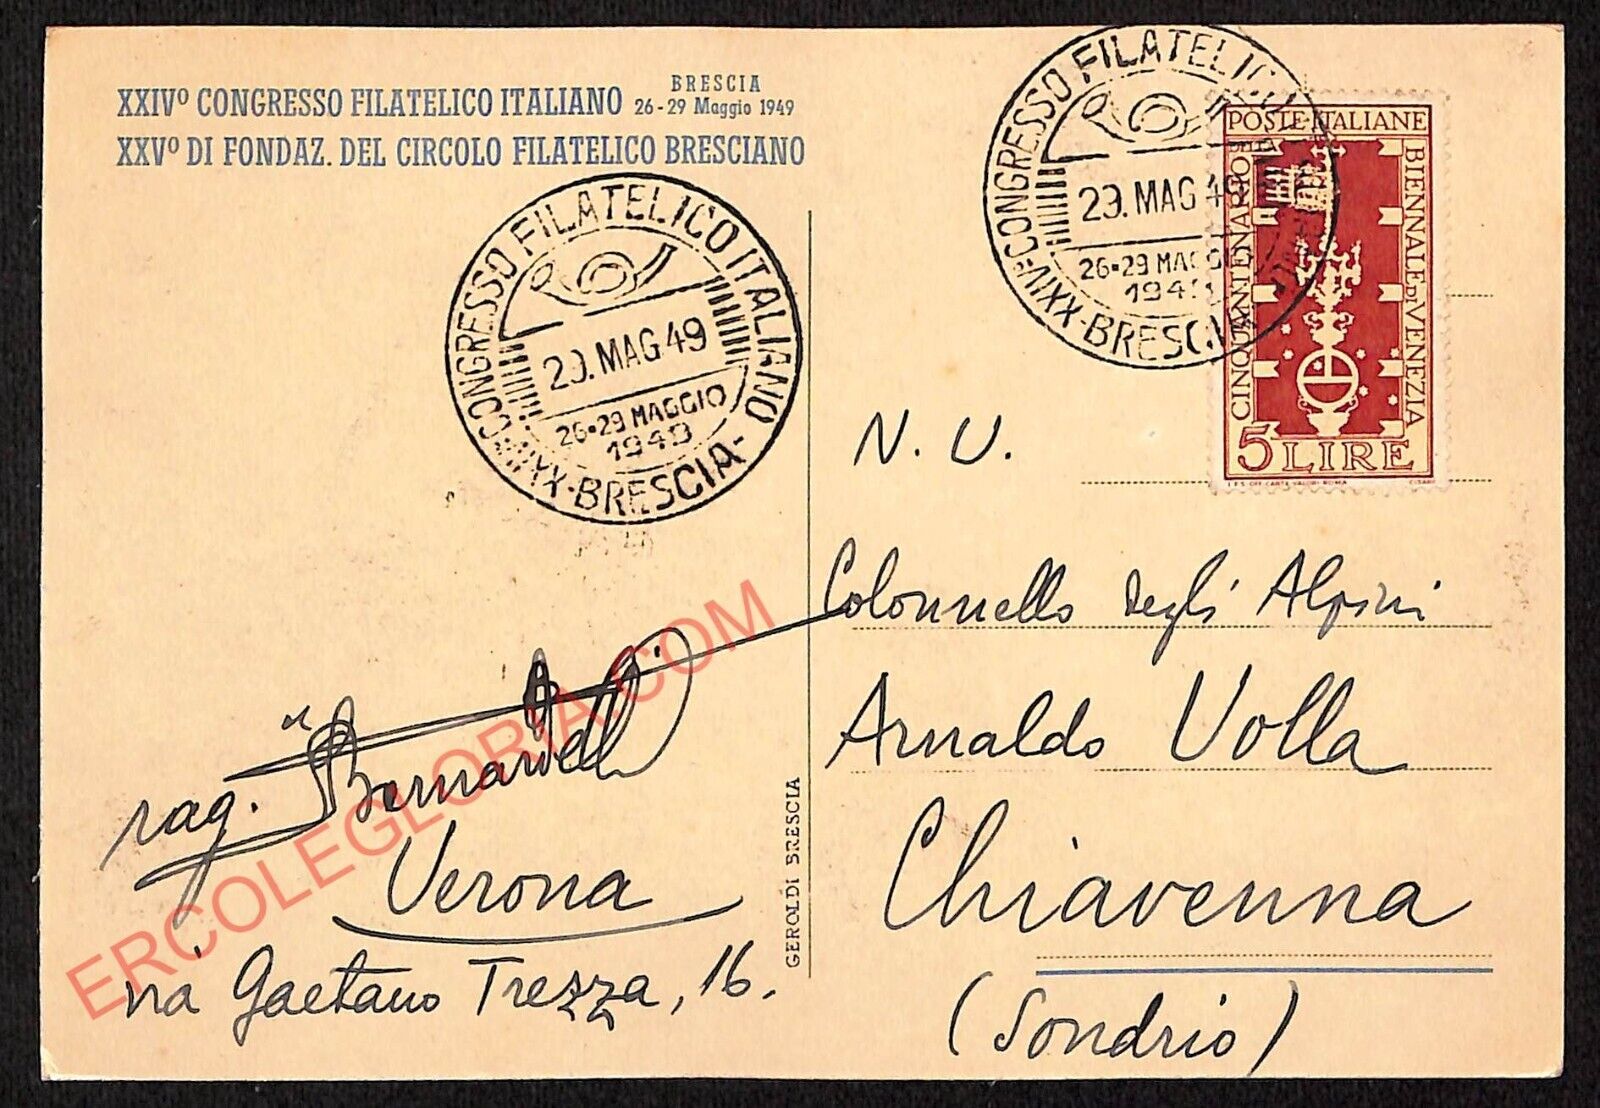 XXIVº CONGRESSO FILATELICO ITALIANO BRESCIA 26-29 Maggio 1949
XXVº DI FONDAZ. DEL CIRCOLO FILATELICO BRESCIANO
XXIVº CONGRESSO FILATELICO ITALIANO
29. MAG 49
26-29 MAGGIO
1949
-BRESCIA-
XXIVº CONGRESSO FILATELICO
29. MAG 49
26-29 MAGGIO
1949
-BRESCIA
POSTE ITALIANE
CINQUANTENARIO DELLA
BIENNALE DI VENEZIA
5 LIRE
I.P.S. OFF. CARTE VALORI ROMA
N. U.
Colonnello degli Alpini
Arnaldo Volla
Chiavenna
(Sondrio)
rag. Bernardelli
Verona
via Gaetano Trezza, 16.
GEROLDI BRESCIA
ERCOLEGLORIA.COM